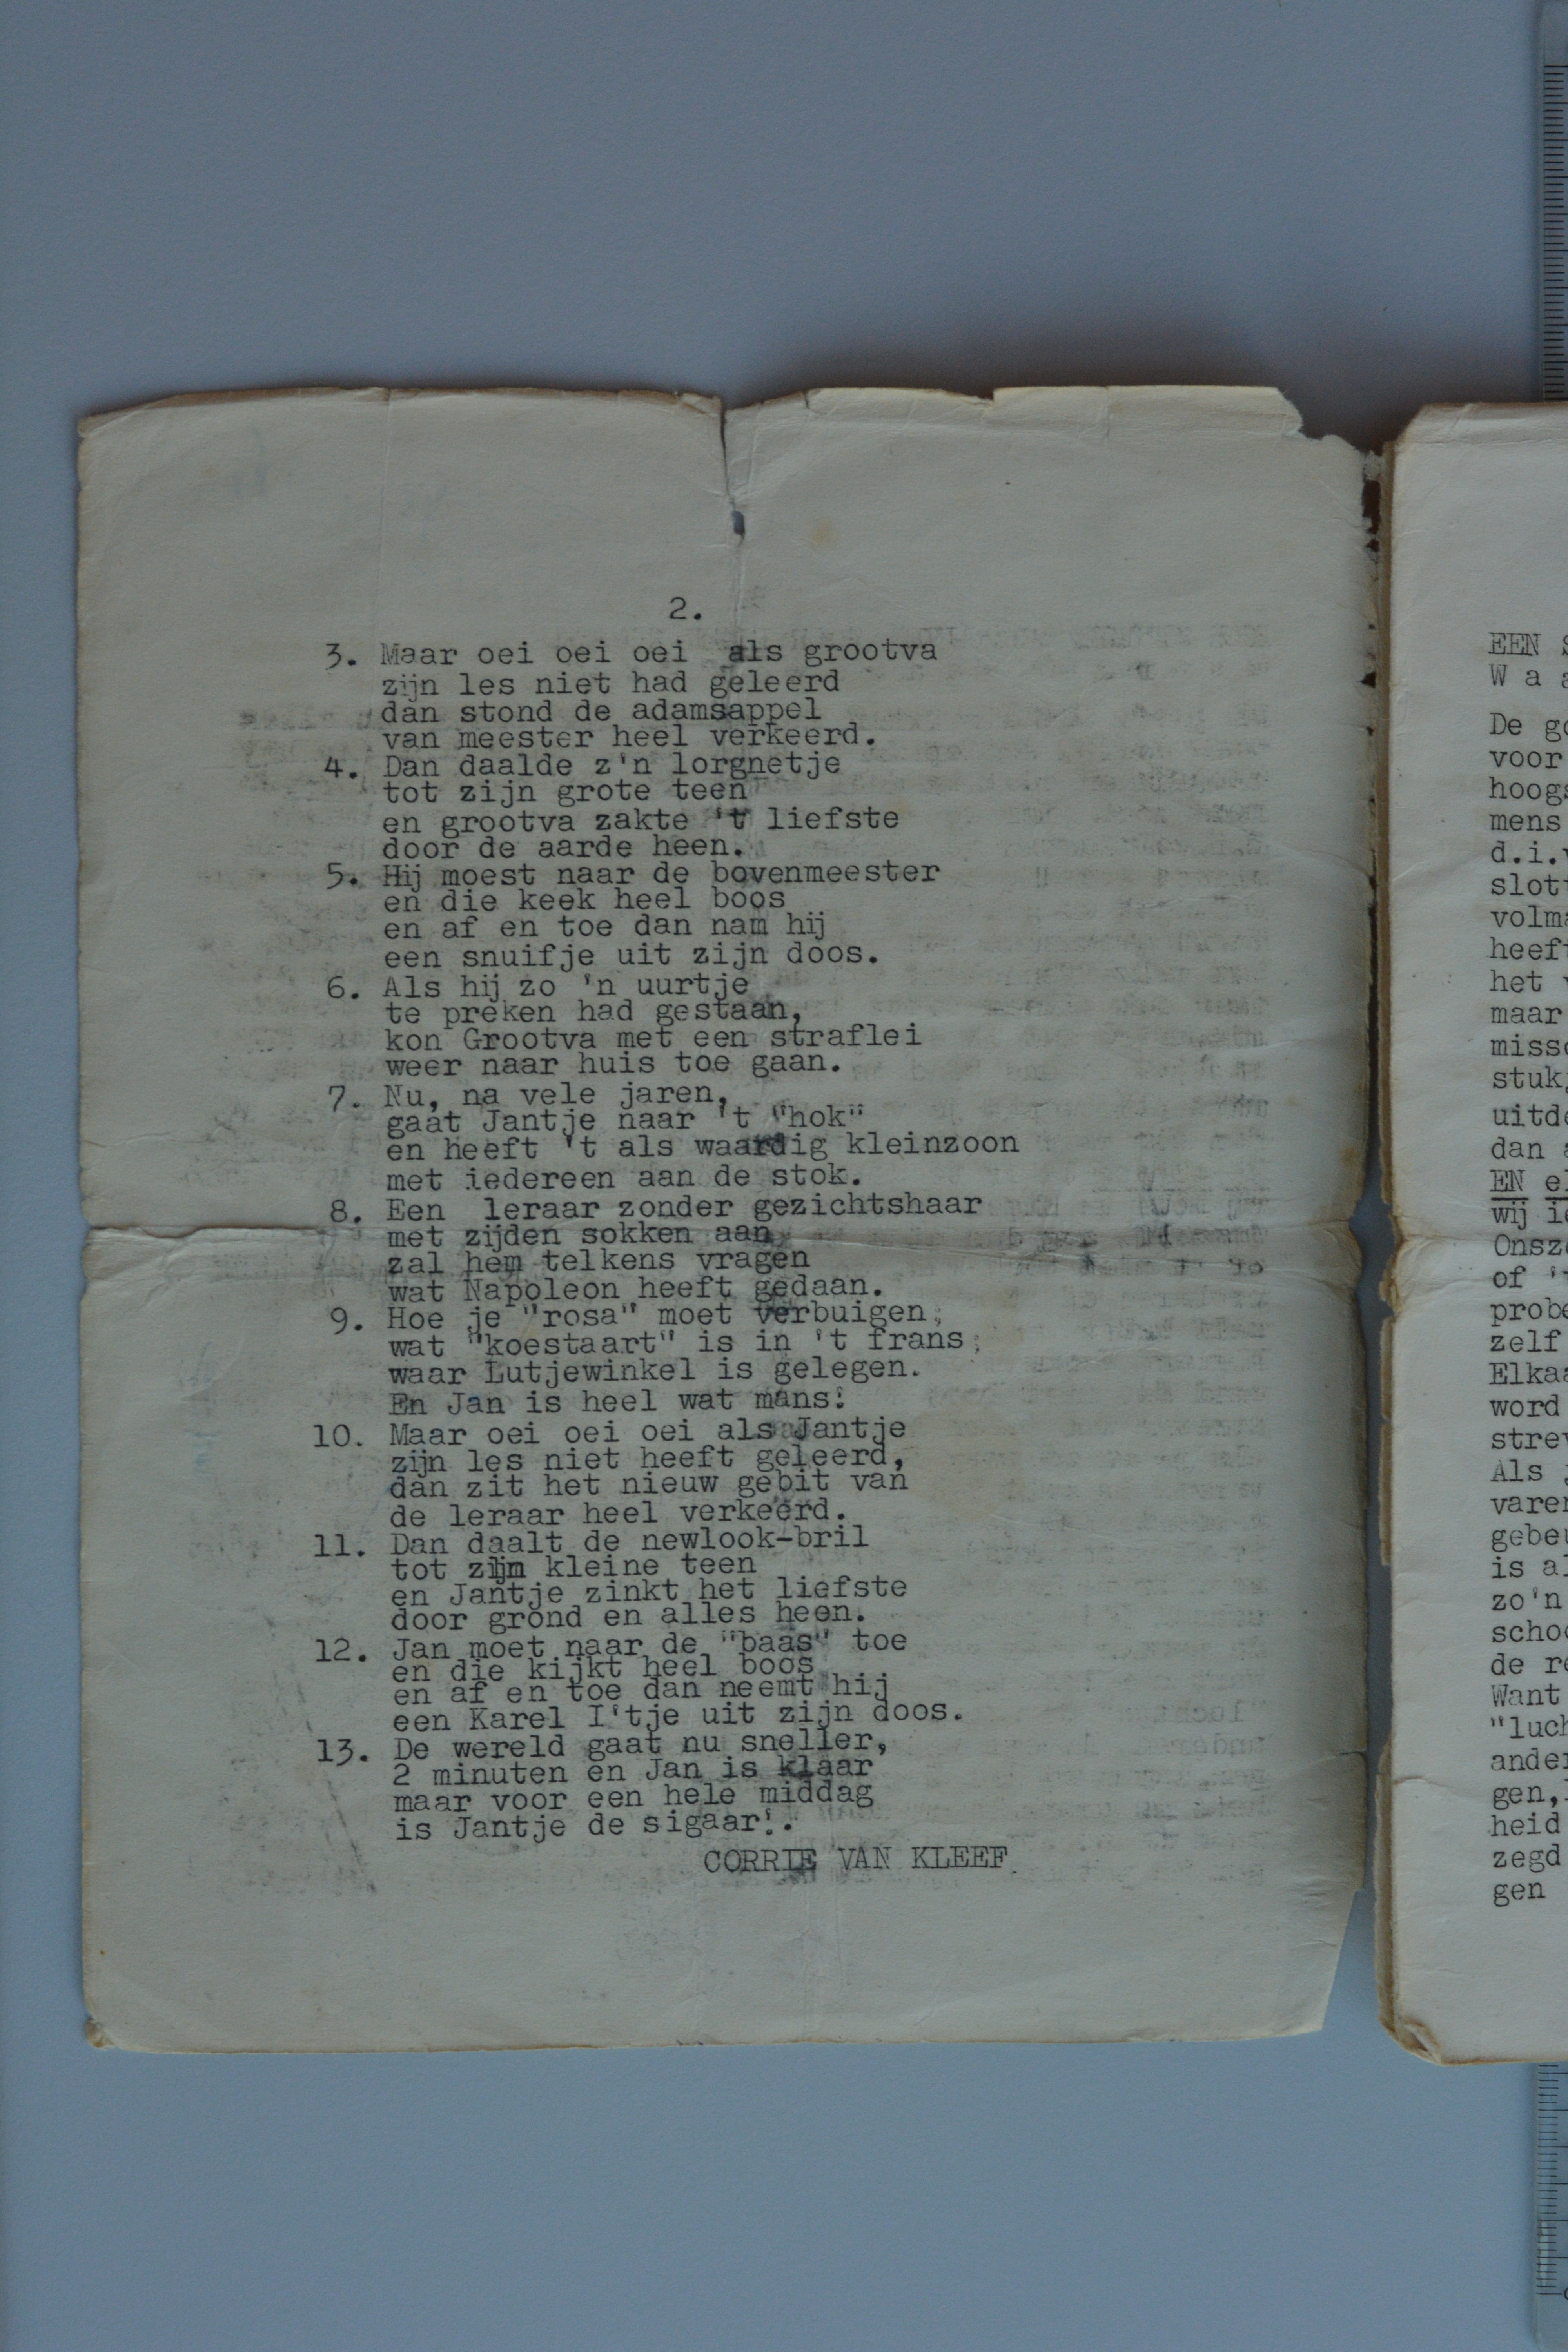 2.
3. Maar oei oei oei als grootva
zijn les niet had geleerd
dan stond de adamsappel
van meester heel verkeerd.
4. Dan daalde z'n lorgnetje
tot zijn grote teen
en grootva zakte 't liefste
door de aarde heen.
5. Hij moest naar de bovenmeester
en die keek heel boos
en af en toe dan nam hij
een snuifje uit zijn doos.
6. Als hij zo 'n uurtje
te preken had gestaan,
kon Grootva met een straflei
weer naar huis toe gaan.
7. Nu, na vele jaren,
gaat Jantje naar 't "hok"
en heeft 't als waardig kleinzoon
met iedereen aan de stok.
8. Een leraar zonder gezichtshaar
met zijden sokken aan
zal hem telkens vragen
wat Napoleon heeft gedaan.
9. Hoe je "rosa" moet verbuigen,
wat "koestaart" is in 't frans,
waar Lutjewinkel is gelegen.
En Jan is heel wat mans!
10. Maar oei oei oei als Jantje
zijn les niet heeft geleerd,
dan zit het nieuw gebit van
de leraar heel verkeerd.
11. Dan daalt de newlook-bril
tot zijn kleine teen
en Jantje zinkt het liefste
door grond en alles heen.
12. Jan moet naar de "baas" toe
en die kijkt heel boos
en af en toe dan neemt hij
een Karel I'tje uit zijn doos.
13. De wereld gaat nu sneller,
2 minuten en Jan is klaar
maar voor een hele middag
is Jantje de sigaar!.
CORRIE VAN KLEEF.
EEN
W a a
De
voor
hoogs
mens
d.i.v
slott
volma
heeft
het
maar
misso
stuk
uitde
dan
EN el
wij ie
Onsze
of 't
probe
zelf
Elkaa
word
strev
Als
varen
gebeu
is al
zo'n
schoo
de re
Want
"luch
ander
gen,
heid
zegd
gen